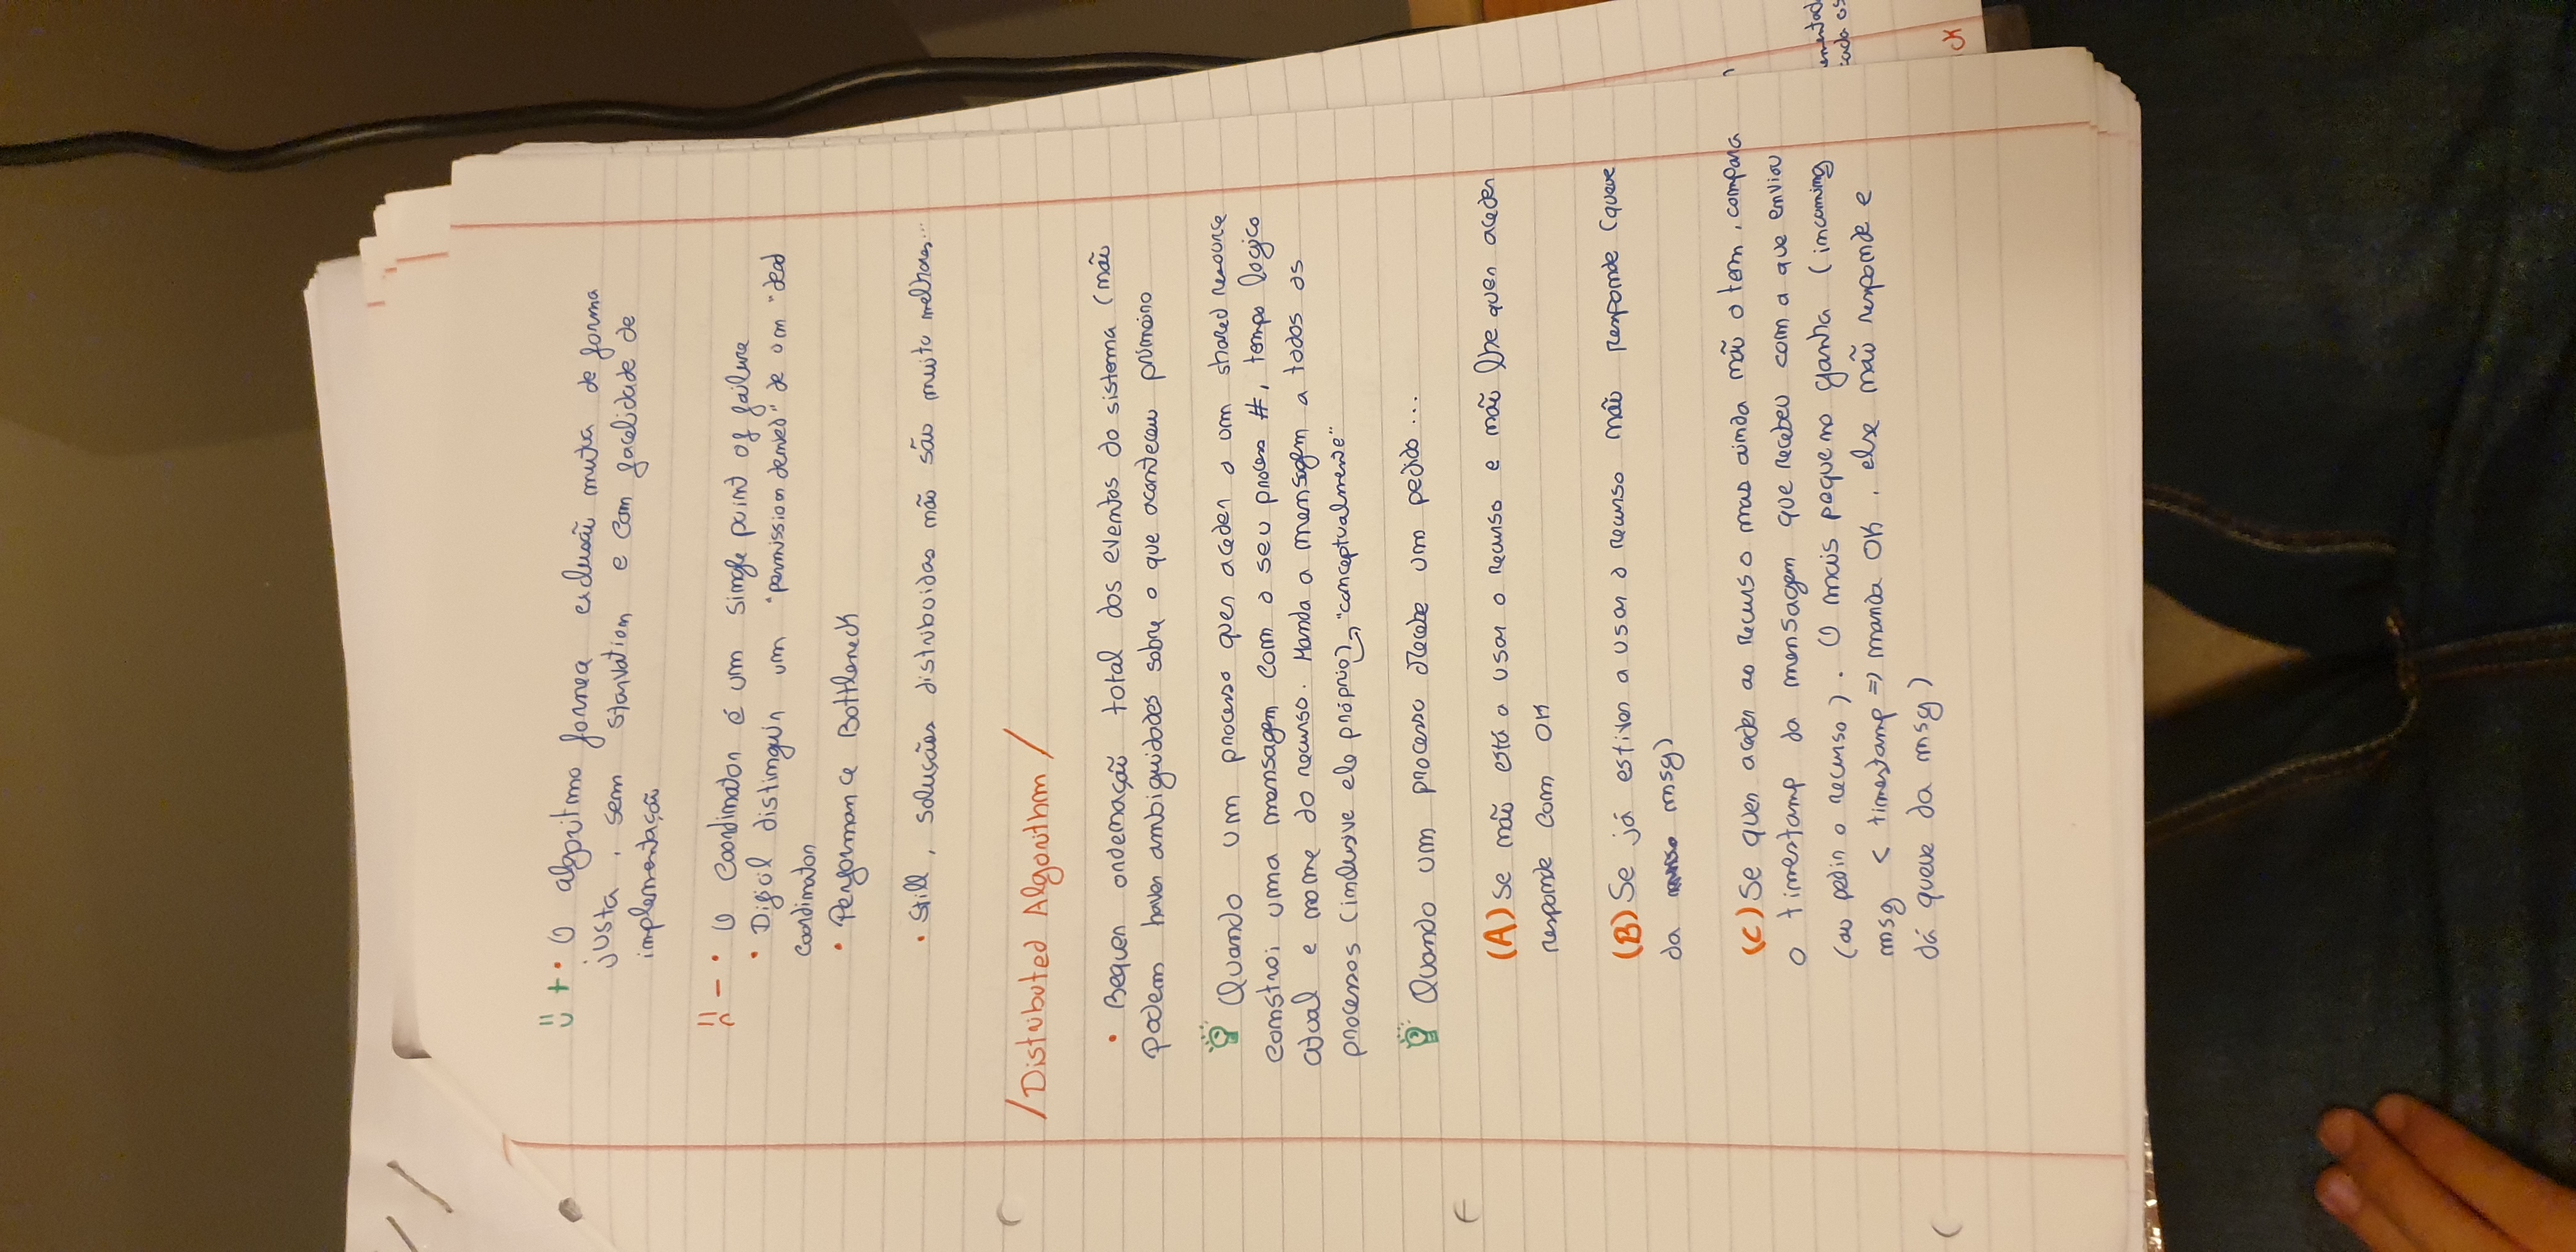 + • O algoritmo fornece exclusão mutua de forma
justa, sem starvation e com facelidade de
implementação
- • O Coordinator é um single point of failure
• Dificil distinguir um "permission denied" de um "dead
coordinator
• Performance Bottleneck
• Still, soluções distribuidas não são muito melhores...
/Distributed Algorithm/
• Requer ordenação total dos eventos do sistema (não
podem haver ambiguidades sobre o que aconteceu primeiro
Quando um processo quer aceder a um shared resource
constroi uma mensagem com o seu process #, tempo logico
atual e nome do recurso. Manda a mensagem a todos os
processos (inclusive ele próprio) → "conceptualmente"
Quando um processo recebe um pedido...
(A) Se não está a usar o recurso e não lhe quer aceder
responde com OK
(B) Se já estiver a usar o recurso não responde (queue
da msg)
(C) Se quer aceder ao recurso mas ainda não o tem, compara
o timestamp da mensagem que recebeu com a que enviou
(ao pedir o recurso). O mais pequeno ganha (incoming
msg < timestamp => manda OK, else não responde e
dá queue da msg)
cada os